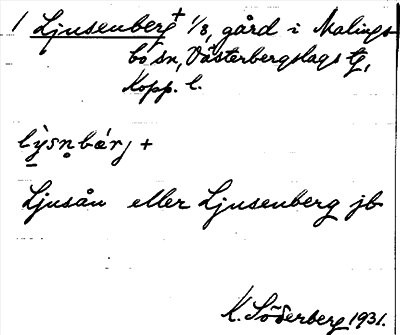 1 Ljusenberg + 1/8, gård i Malings-
bo sn, Västerbergslags tg,
Kopp. l.
lỳsn̥bærj +
Ljusån eller Ljusenberg jb
K. Söderberg 1931.